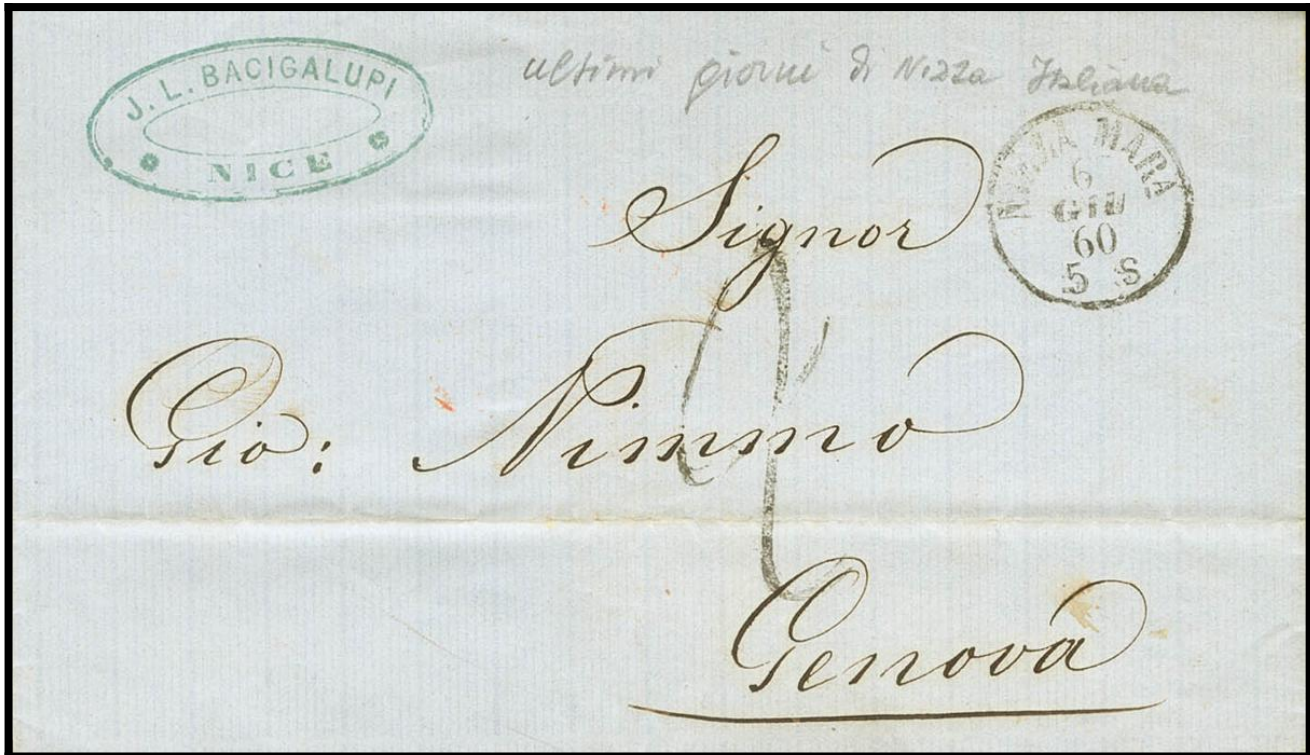 J. L. BACIGALUPI
NICE
ultimi giorni di Nizza Italiana
NIZZA MARA
6
GIU
60
5 S
Signor
Gio: Nimmo
Genova